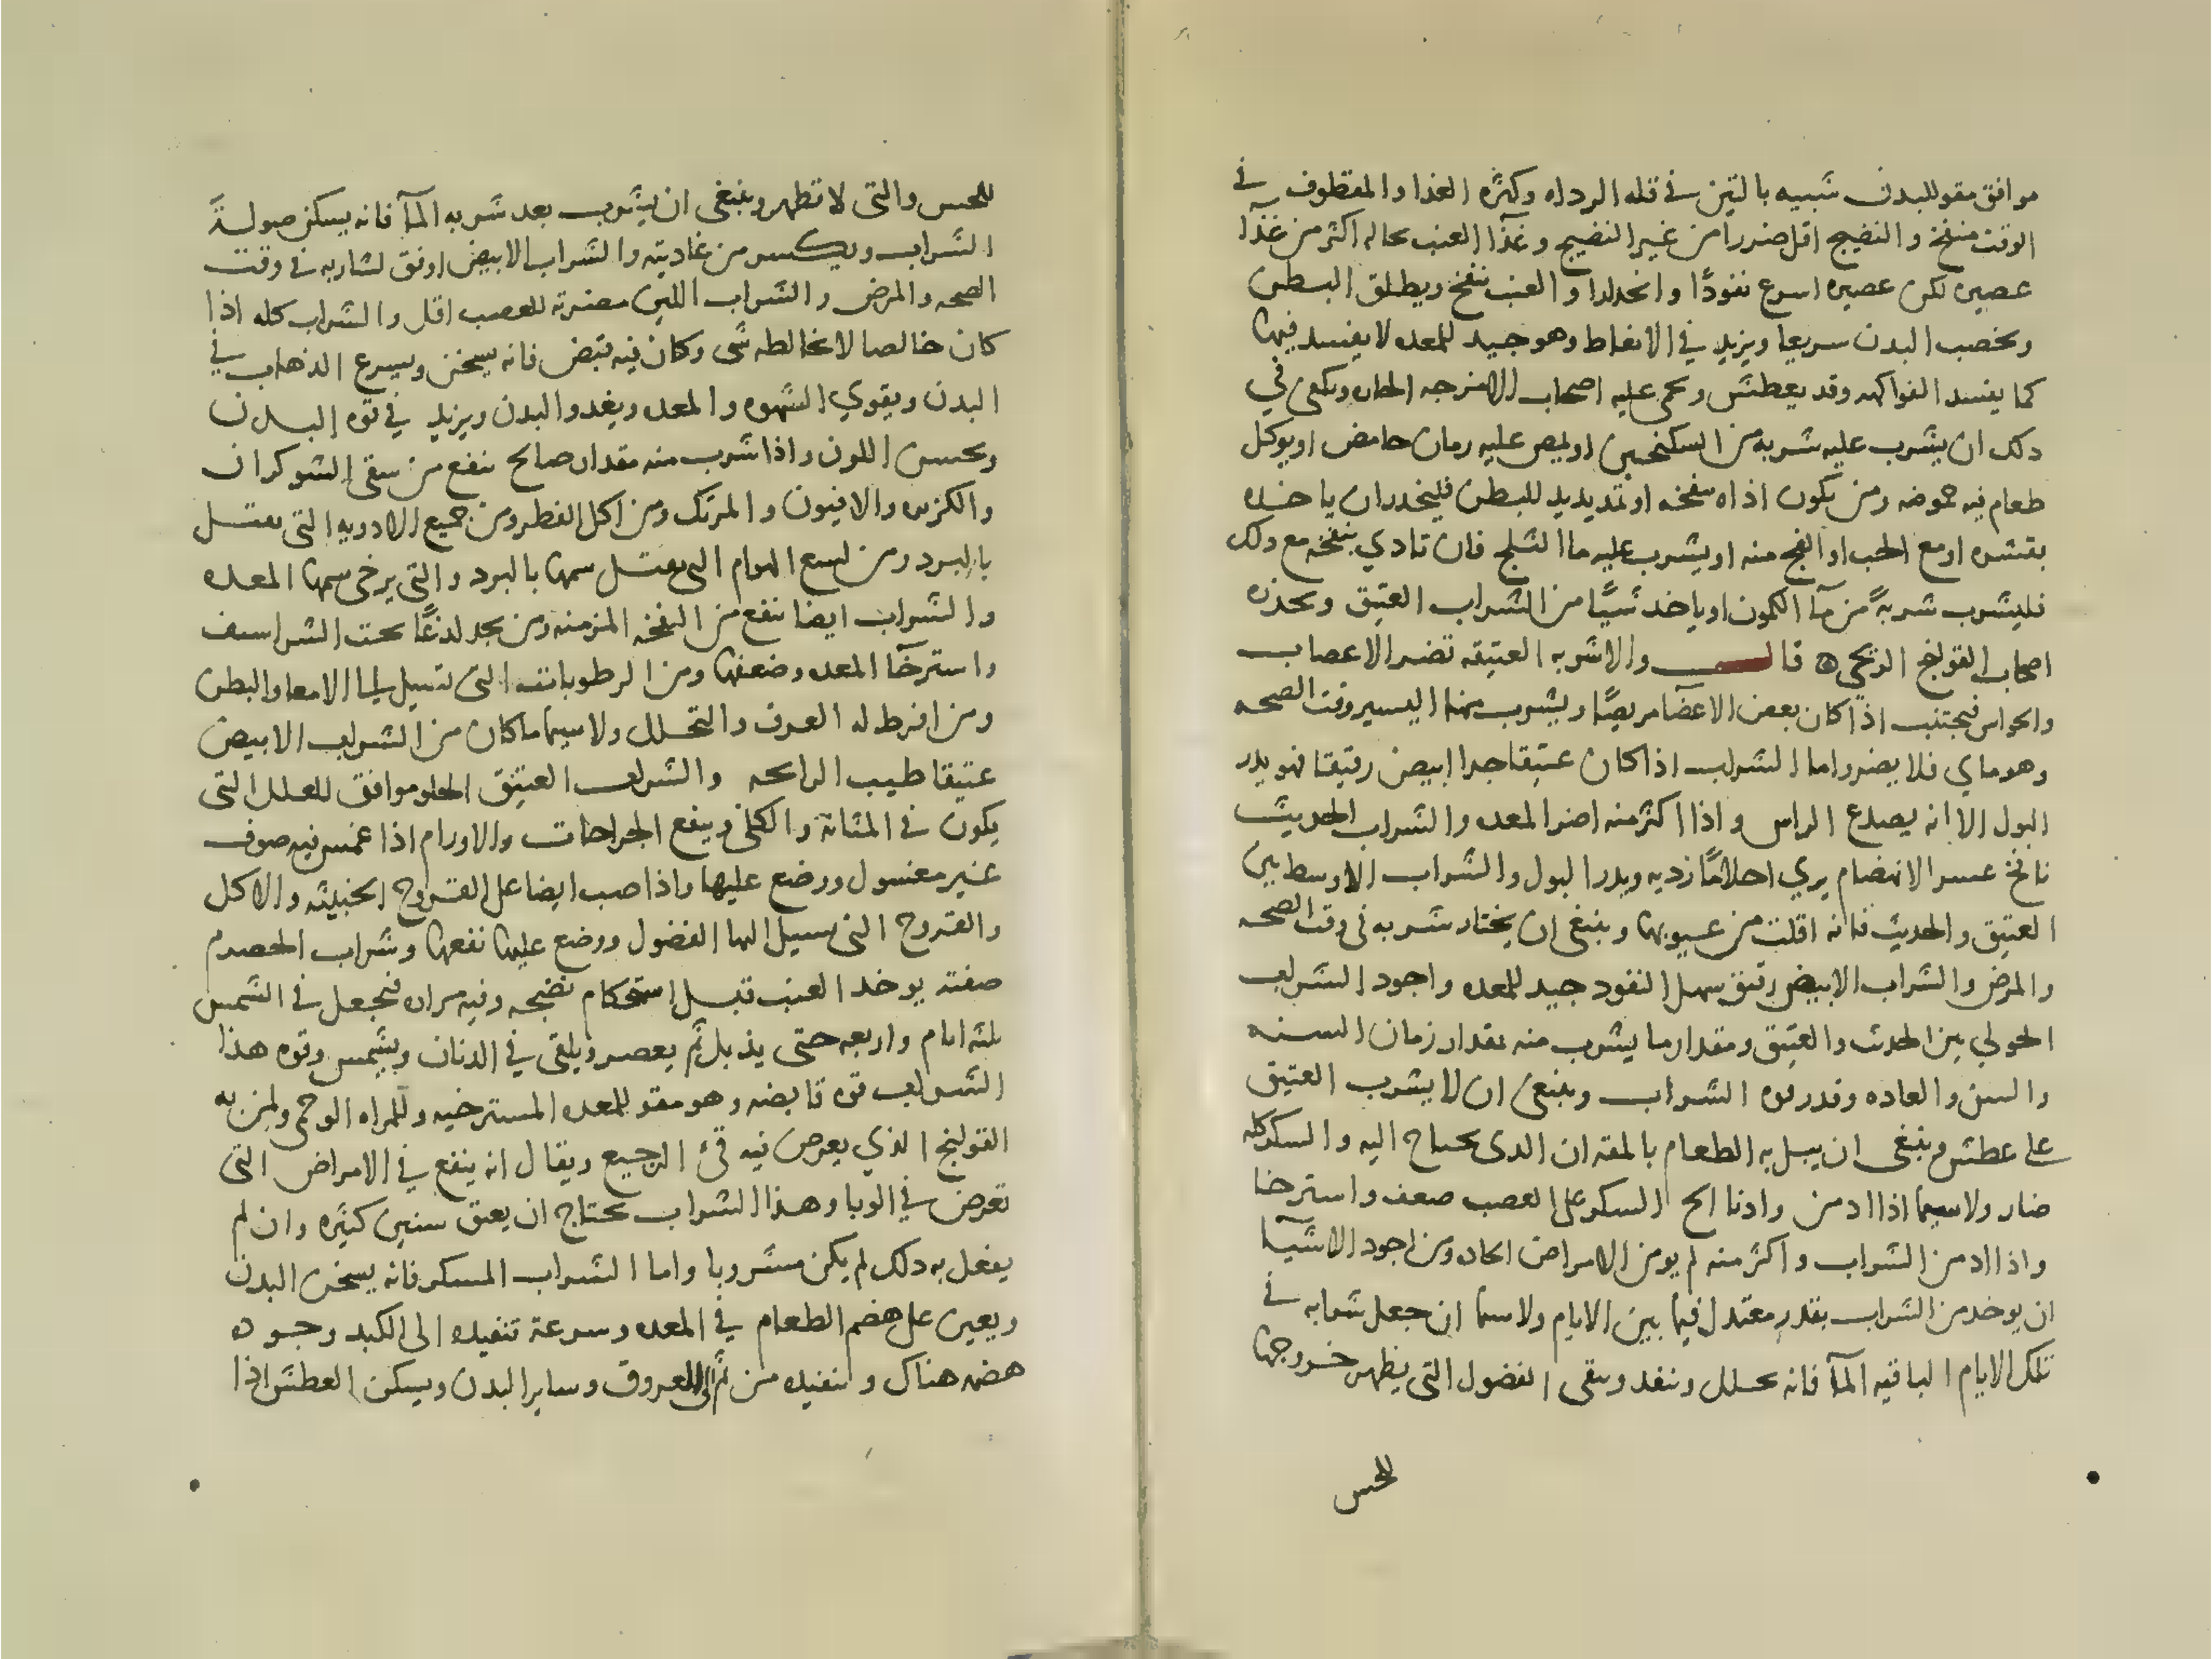 موافق مقو للبدن شبيه بالتين في قله الرداه وكثره الغذا والمقطوف في
الوقت منفخ والنضيج اقل ضررا من غير النضيج وغذآ العنب بحاله اكثر من غذآ
عصيره لكن عصيره اسرع نفوذًا وانحدارا والعنب ينفخ ويطلق البطن
ويخصب البدن سريعا ويزيد في الانعاظ وهو جيد للمعده لا يفسد فيها
كما يفسد الفواكه وقد يعطش ويحمي عليه اصحاب الامزجه الحاره ويكفي في
دلك ان يشرب عليه شربه من السكنجبين او يمص عليه رمان حامض او يوكل
طعام فيه حموضه ومن يكون اذاه بنفخه او تمديد للبطن فليحذر ان ياخذه
بقشره او مع الحب او الفج منه او يشرب عليه ما الثلج فان تادي بنفخه مع دلك
فليشرب شربهً من مآ الكمون او ياخد شيًا من الشراب العتيق ويحذره
اصحاب القولنج الريحي ه قال والاشربه العتيقه تضر الاعصاب
والحواس فيجتنب اذا كان بعض الاعضآ مريضًا ويشرب منها اليسير وقت الصحه
وهو ماي فلا يضر واما الشراب اذا كان عتيقا جدا ابيض رقيقا فهو يدر
البول الا انه يصدع الراس واذا اكثر منه اضر المعده والشراب الحديث
نافخ عسر الانهضام يري احلامًا رديه ويدر البول والشراب الاوسط بين
العتيق والحديث فانه اقلت من عيوبها وينبغي ان يختار شربه في وقت الصحه
والمرض والشراب الابيض رقيق سهل النفود جيد للمعده واجود الشراب
الحولي بين الحدث والعتيق ومقدار ما يشرب منه بقدار زمان السنه
والسن والعاده وقدر قوه الشراب وينبغي ان لا يشرب العتيق
على عطش وينبغي ان يبل به الطعام بالمقدار الدي يحتاج اليه والسكر كله
ضار ولا سيما اذا ادمن وادنا الح السكر على العصب ضعف واسترخا
واذا ادمن الشراب واكثر منه لم يومن الامراض الحاده ومن اجود الاشيآ
ان يوخد من الشراب بقدر معتدل فيما بين الايام ولا سيما ان جعل شرابه في
تلك الايام الباقيه المآ فانه يحلل وينفد ويبقى الفضول التي يظهر خروجها
للحس
للحس والتي لا تظهر وينبغي ان يشرب بعد شربه المآ فانه يسكن صولة
الشراب ويكسر من غاديته والشراب الابيض اوفق لشاربه في وقت
الصحه والمرض والشراب اللين مضرته للعصب اقل والشراب كله اذا
كان خالصا لا يخالطه شي وكان فيه قبض فانه يسخن ويسرع الذهاب في
البدن ويقوي الشهوه والمعده ويغدوا البدن ويزيد في قوه البدن
ويحسن اللون واذا شرب منه مقدار صالح نفع من سقي الشوكران
والكزبره والافيون والمرتك ومن اكل الفطر ومن جميع الادويه التي يقتل
بالبرد ومن لسع الهوام التي يقتل سمها بالبرد والتي يرخي سمها المعده
والشراب ايضا ينفع من النفخه المزمنه ومن يجد لدغًا تحت الشراسيف
واسترخآ المعده وضعفها ومن الرطوبات التي تسيل الي الامعا والبطن
ومن افرط له العرق والتحلل ولا سيما ما كان من الشراب الابيض
عتيقا طيب الرايحه والشراب العتيق الحلو موافق للعلل التي
يكون في المثانة والكلي وينفع الجراحات والاورام اذا غمس فيه صوف
غير مغسول ووضع عليها واذا صب ايضا على القروح الخبيثه والاكل
والقروح التي تسيل اليها الفضول ووضع عليها نفعها وشراب الحصرم
صفته يوخد العنب قبل استحكام نضجه وفيه مراره فيجعل في الشمس
ثلثه ايام واربعه حتى يذبل ثم يعصر ويلقي في الدنان ويشمس وقوه هذا
الشراب قوه قابضه وهو مقو للمعده المسترخيه وللمراه الوحمي ولمن به
القولنج الذي يعرض فيه قئ الرجيع ويقال انه ينفع في الامراض التي
تعرض في الوبا وهذا الشراب يحتاج ان يعتق سنين كثيره وان لم
يفعل به دلك لم يكن مشروبا واما الشراب المسكر فانه يسخن البدن
ويعين على هضم الطعام في المعده وسرعة تنفيده الى الكبد وجوده
هضمه هناك وتنفيده من ثم الى العروق وساير البدن ويسكن العطش اذا